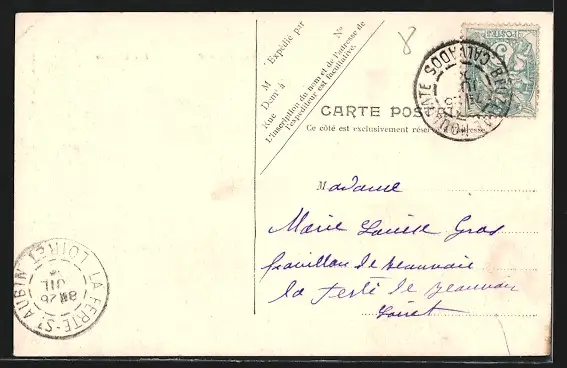 M Expédié par
Nº
Dom.e à
Rue
L'inscription du nom et de l'adresse de
l'expéditeur est facultative.
8
CALVADOS
CARTE POSTALE
Ce côté est exclusivement réservé à l'adresse
Madame
Marie Louise Gros
Pavillon de Beauvais
la Ferté le Beauvais
Loiret
LA FERTÉ-ST AUBIN
LOIRET
8 26
JUIL